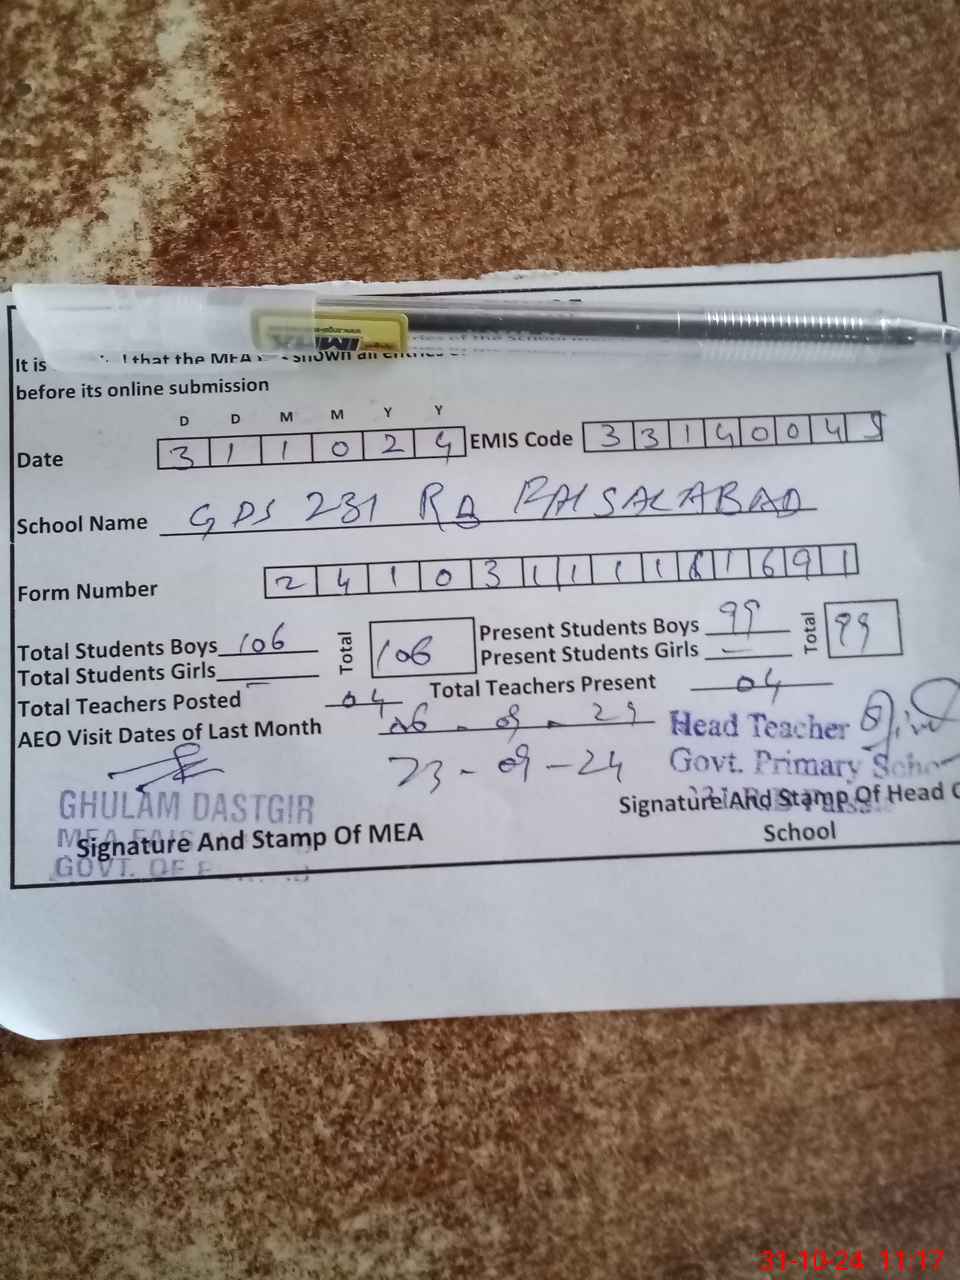 It is that the MEA shown all entries of the School
before its online submission
D D M M Y Y
Date 3 1 1 0 2 4 EMIS Code 3 3 1 4 0 0 4 5
School Name GPS 231 RB FAISALABAD
Form Number 2 4 1 0 3 1 1 1 1 6 1 6 9 1
Total Students Boys 106 Total 106 Present Students Boys 99 Total 99
Total Students Girls — Present Students Girls —
Total Teachers Posted 04 Total Teachers Present 04
AEO Visit Dates of Last Month 09
23-09-24
Head Teacher
Govt. Primary
GHULAM DASTGIR
MEA
Signature And Stamp Of MEA
GOVT. OF
Signature And Stamp Of Head
School
31-10-24 11:17